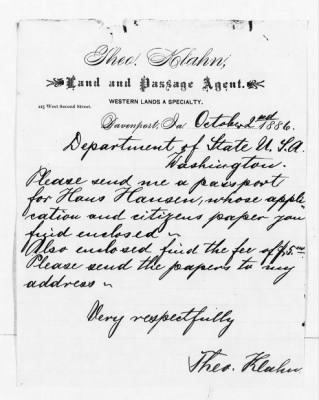 Theo. Klahn,
Land and Passage Agent.
WESTERN LANDS A SPECIALTY.
West Second Street.
Davenport, Ia October 2nd 1886.
Department of State U.S.A.
Washington.
Please send me a passport
for Hans Hansen, whose appli
cation and citizens paper you
find enclosed
Also enclosed find the fee of
Please send the papers to my
address
Very respectfully
Theo. Klahn